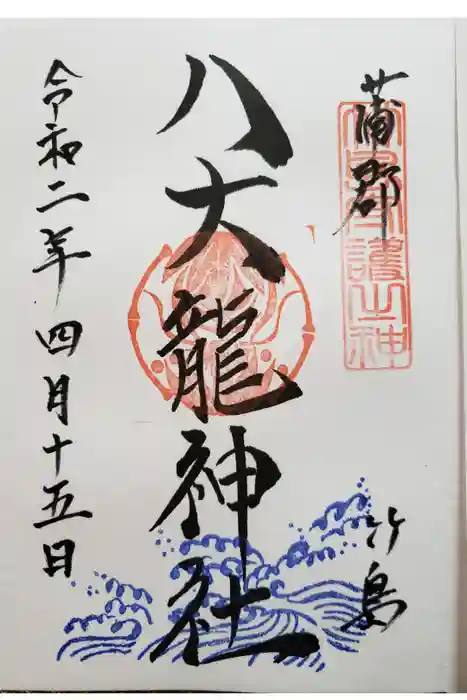 蒲郡
竹島
八大龍神社
令和二年四月十五日